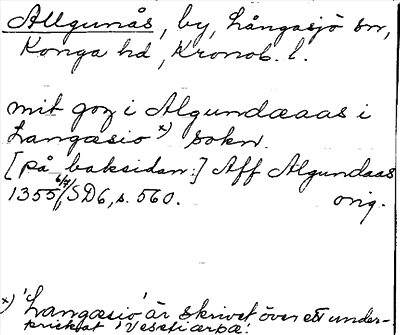 Allgunås, by, Långasjö sn,
Konga hd, Kronob. l.
mit goz i Algundaaas i
Langæsio x) sokn.
[på baksidan:] Aff Algundaas
1355 6/7, SD6, s. 560. orig.
x) 'Langæsio' är skrivet över ett under-
prickat 'Vesetiærpa'.